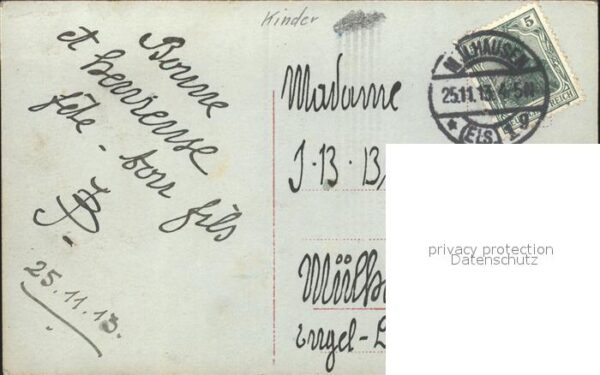 Kinder
Bonne
et heureuse
fête - ton fils
JB.
25.11.13.
MÜLHAUSEN
25.11.13. 4-5N
★ (ELS.) 1 g
5
REICH
Madame
J · 13 · 13
Mülh
Engel -
privacy protection
Datenschutz